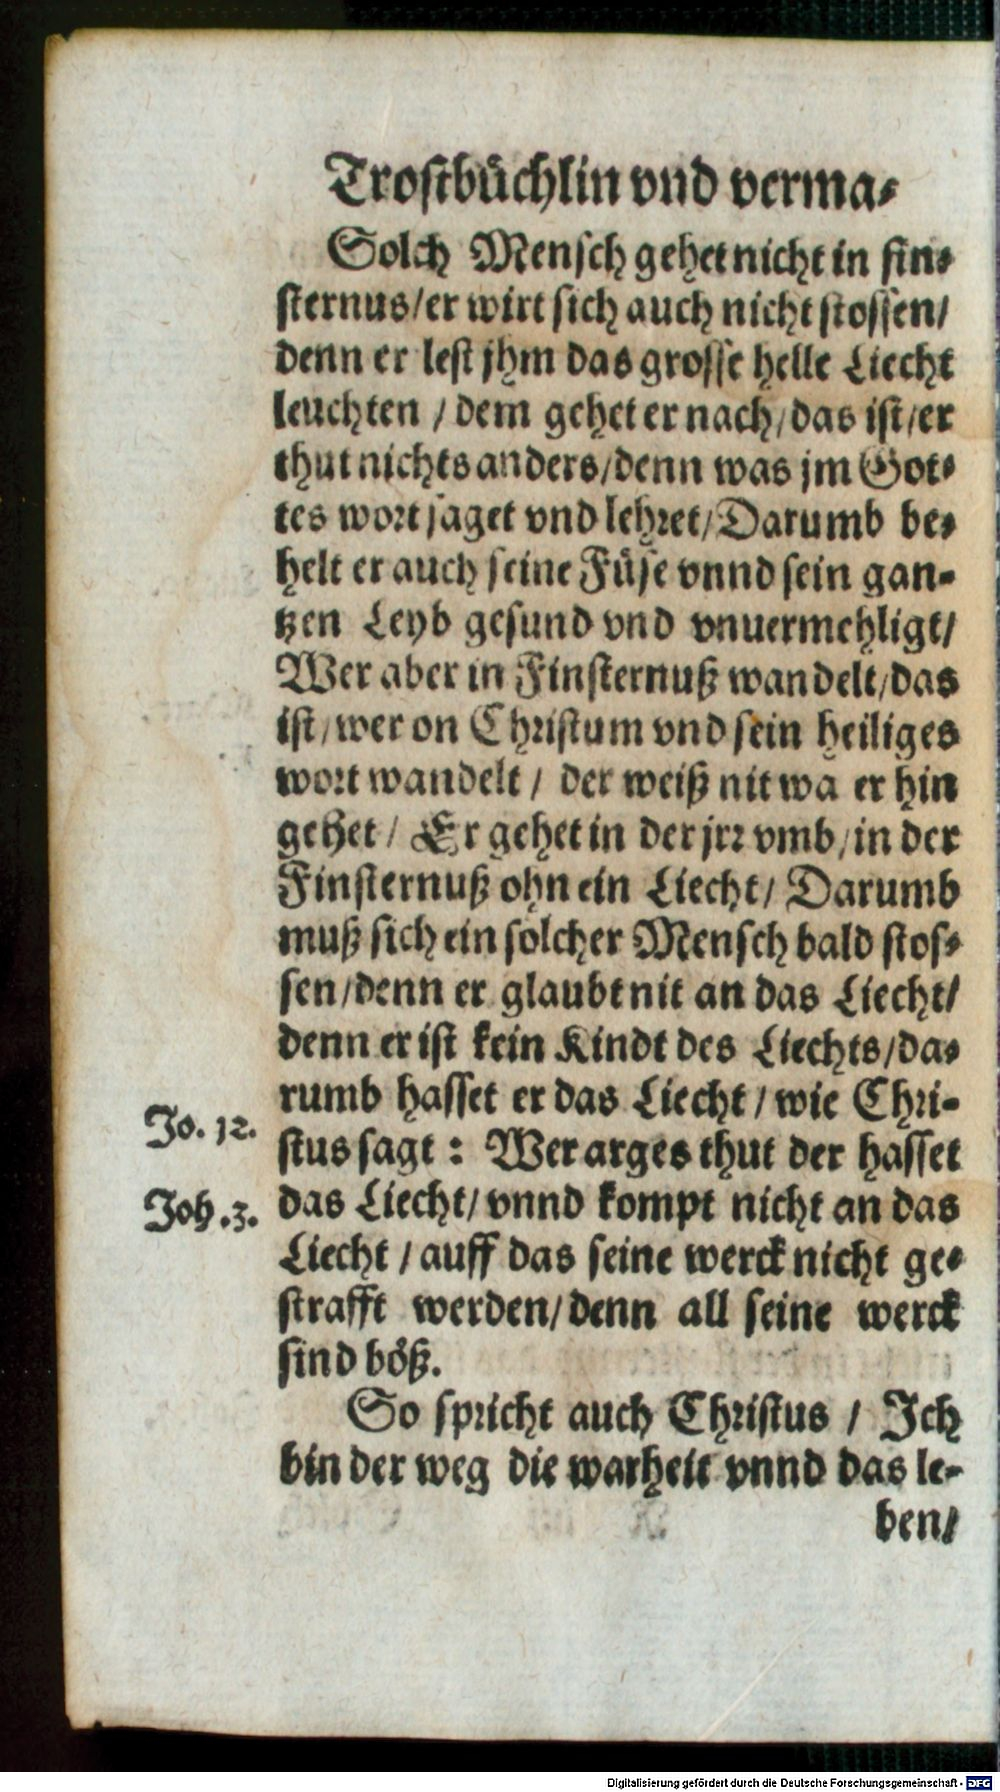 Trostbüchlin vnd verma-
Solch Mensch gehet nicht in fin-
sternus/er wirt sich auch nicht stossen/
denn er lest jhm das grosse helle Liecht
leuchten / dem gehet er nach/das ist/er
thut nichts anders/denn was jm Got-
tes wort saget vnd lehret/Darumb be-
helt er auch seine Füse vnnd sein gan-
tzen Leyb gesund vnd vnuermehligt/
Wer aber in Finsternuß wandelt/das
ist/wer on Christum vnd sein heiliges
wort wandelt / der weiß nit wa er hin
gehet / Er gehet in der jrr vmb/in der
Finsternuß ohn ein Liecht/ Darumb
muß sich ein solcher Mensch bald stos-
sen/denn er glaubt nit an das Liecht/
denn er ist kein Kindt des Liechts/da-
rumb hasset er das Liecht / wie Chri-
Jo. 12.
stus sagt : Wer arges thut der hasset
Joh .3.
das Liecht/ vnnd kompt nicht an das
Liecht / auff das seine werck nicht ge-
strafft werden/denn all seine werck
sind böß.
So spricht auch Christus / Ich
bin der weg die warheit vnnd das le-
ben/
Digitalisierung gefördert durch die Deutsche Forschungsgemeinschaft - DFG